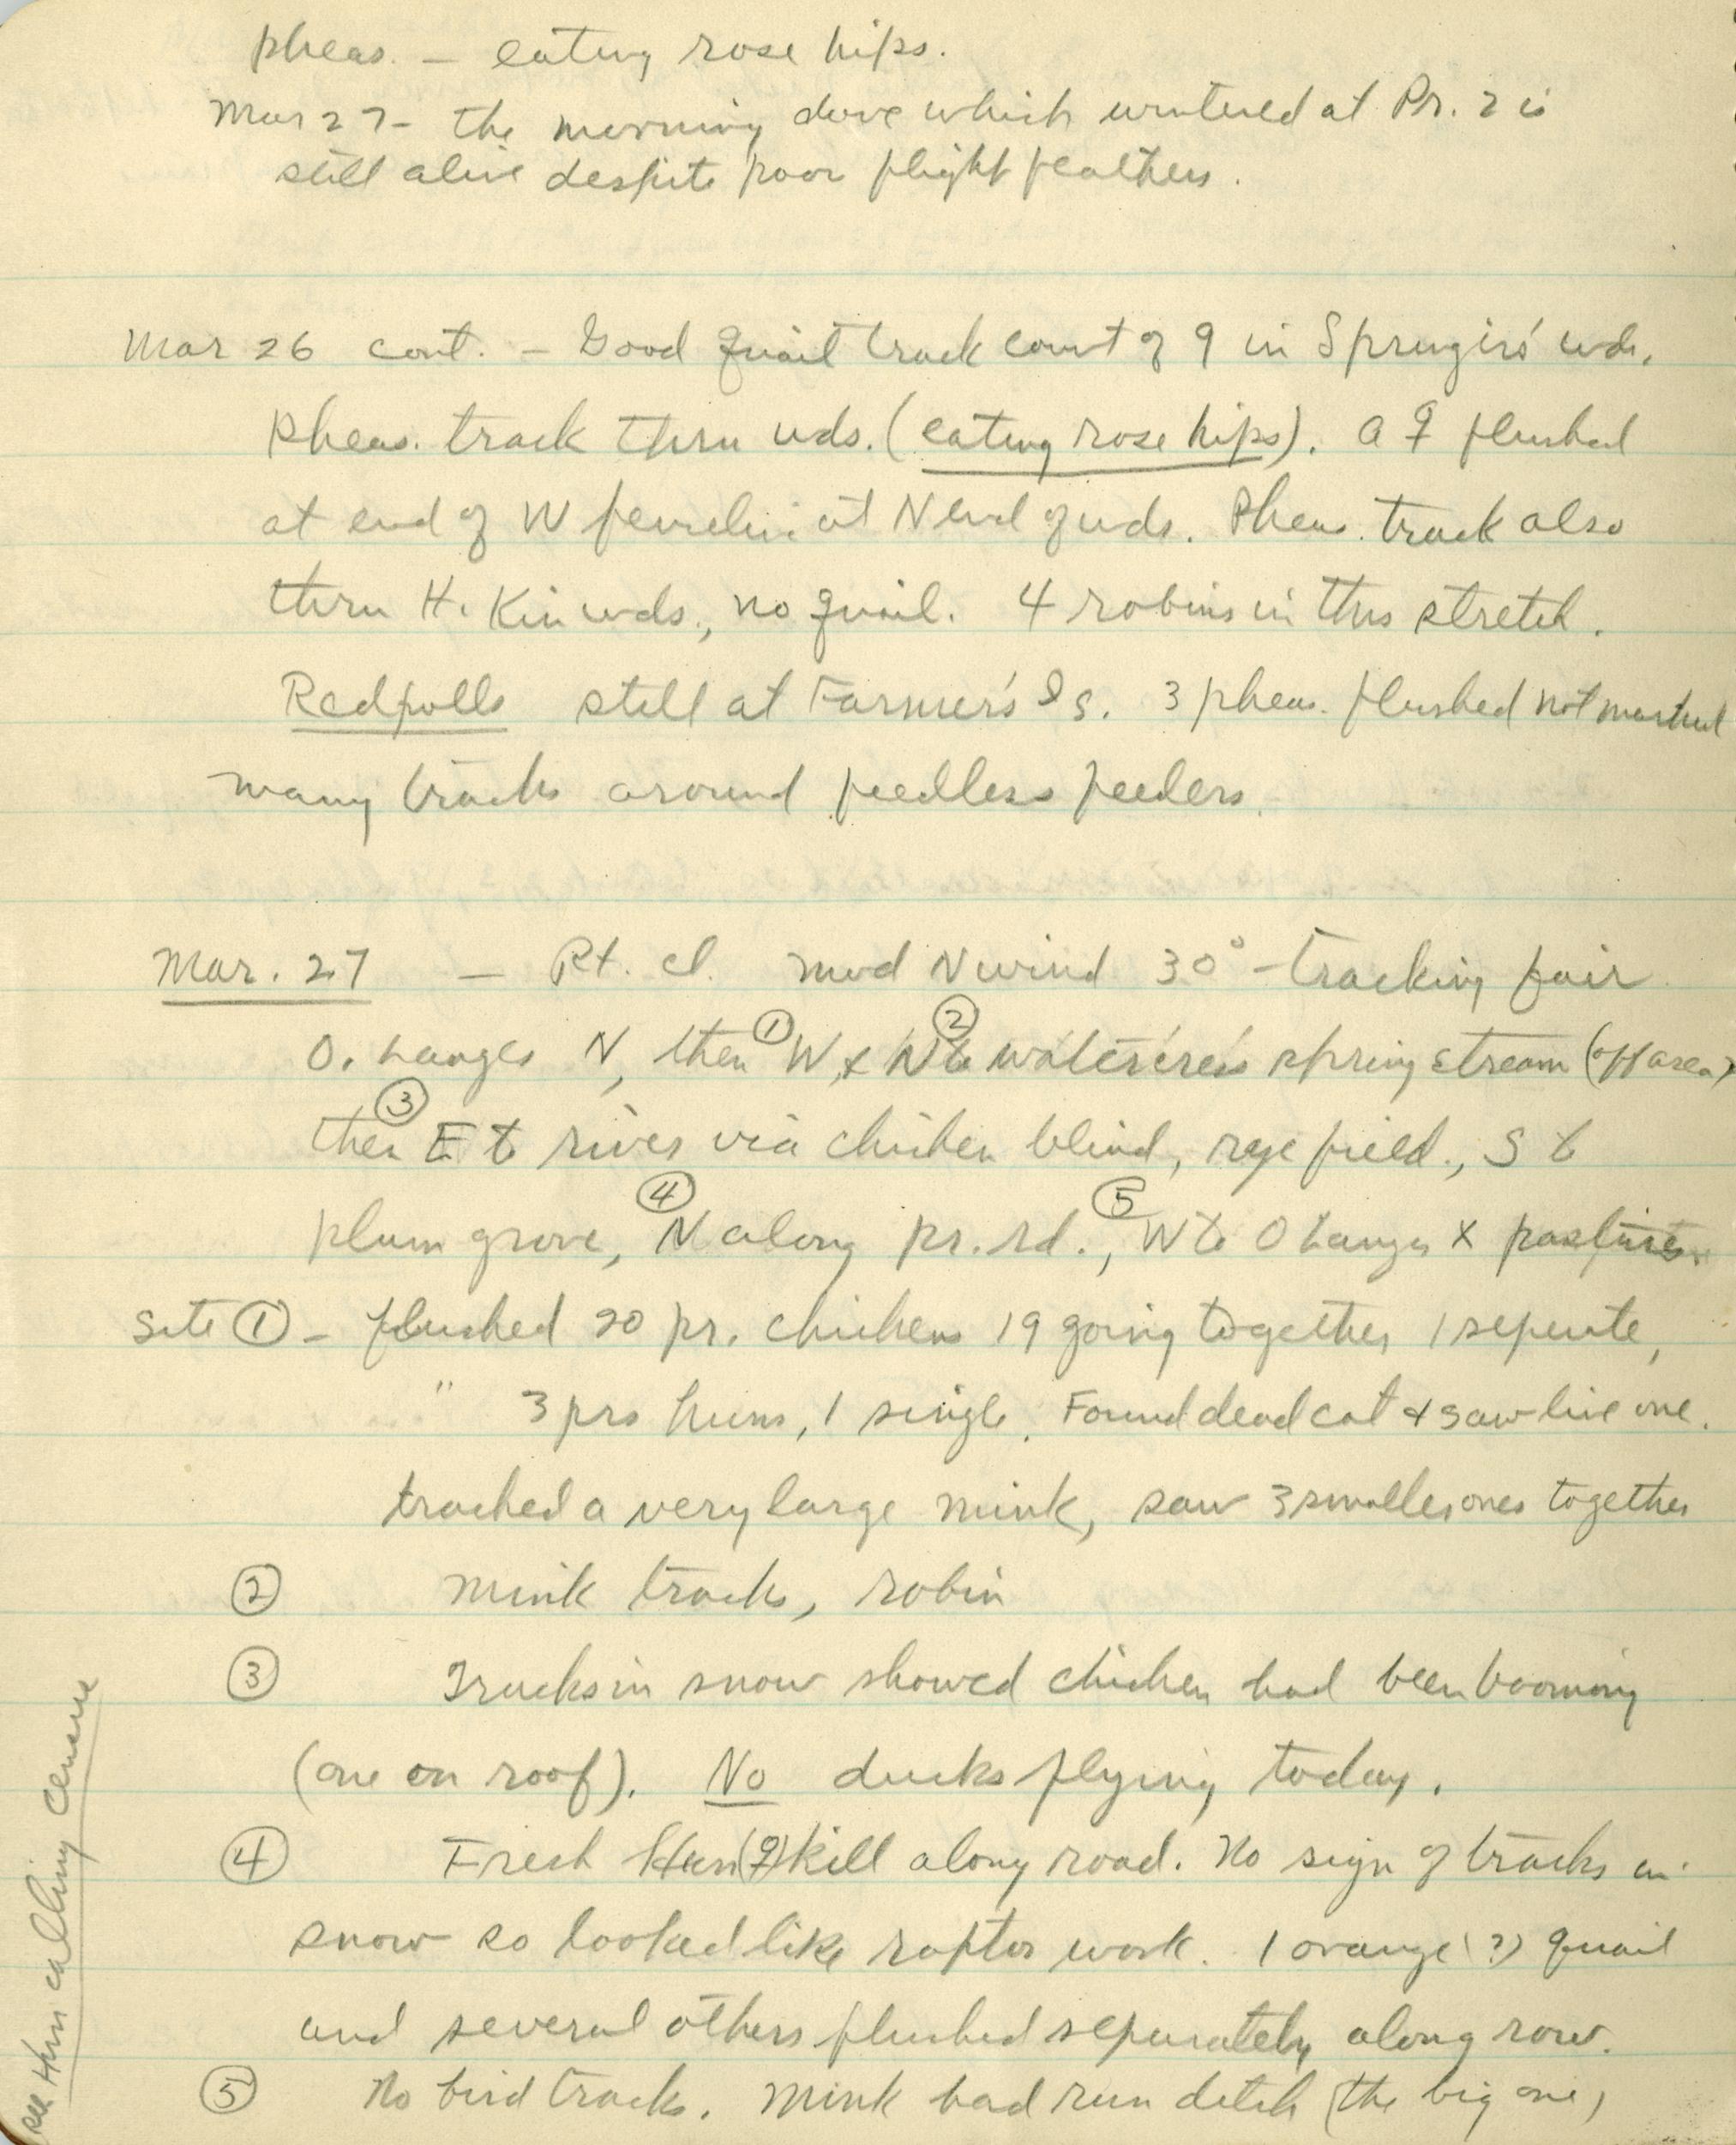 pheas. – eating rose hips.
Mar 27 – the morning dove which wintered at Pr. 2 is
still alive despite poor flight feathers.
Mar 26 cont. – Good quail track count of 9 in wds.
Pheas. track thru wds. (eating rose hips). A ♀ flushed
at end of W fenceline at N end of wds. Pheas. track also
thru H. Kin wds., no quail. 4 robins in this stretch.
Redpolls still at Farmer's Is. 3 pheas. flushed not marked
many tracks around feedless feeders.
Mar. 27 – Pt. cl. mod N wind 30° – tracking fair
O. Langes N, then ① W, & ② N to spring stream (off area)
then ③ E to river via chicken blind, rye field., S to
plum grove, ④ N along pr. rd., ⑤ W to O Langes x pastures.
Site ① – flushed 20 pr. chickens 19 going together 1 seperate,
" 3 prs huns, 1 single. Found dead cat & saw live one.
tracked a very large mink, saw 3 smaller ones together
② Mink tracks, robin
③ Tracks in snow showed chicken had been booming
(one on roof). No ducks flying today.
④ Fresh Hun (♀) kill along road. No sign of tracks in
snow so looked like raptor work. 1 orange (?) quail
and several others flushed separately along row.
⑤ No bird tracks. Mink had run ditch (the big one)
see Hun calling census